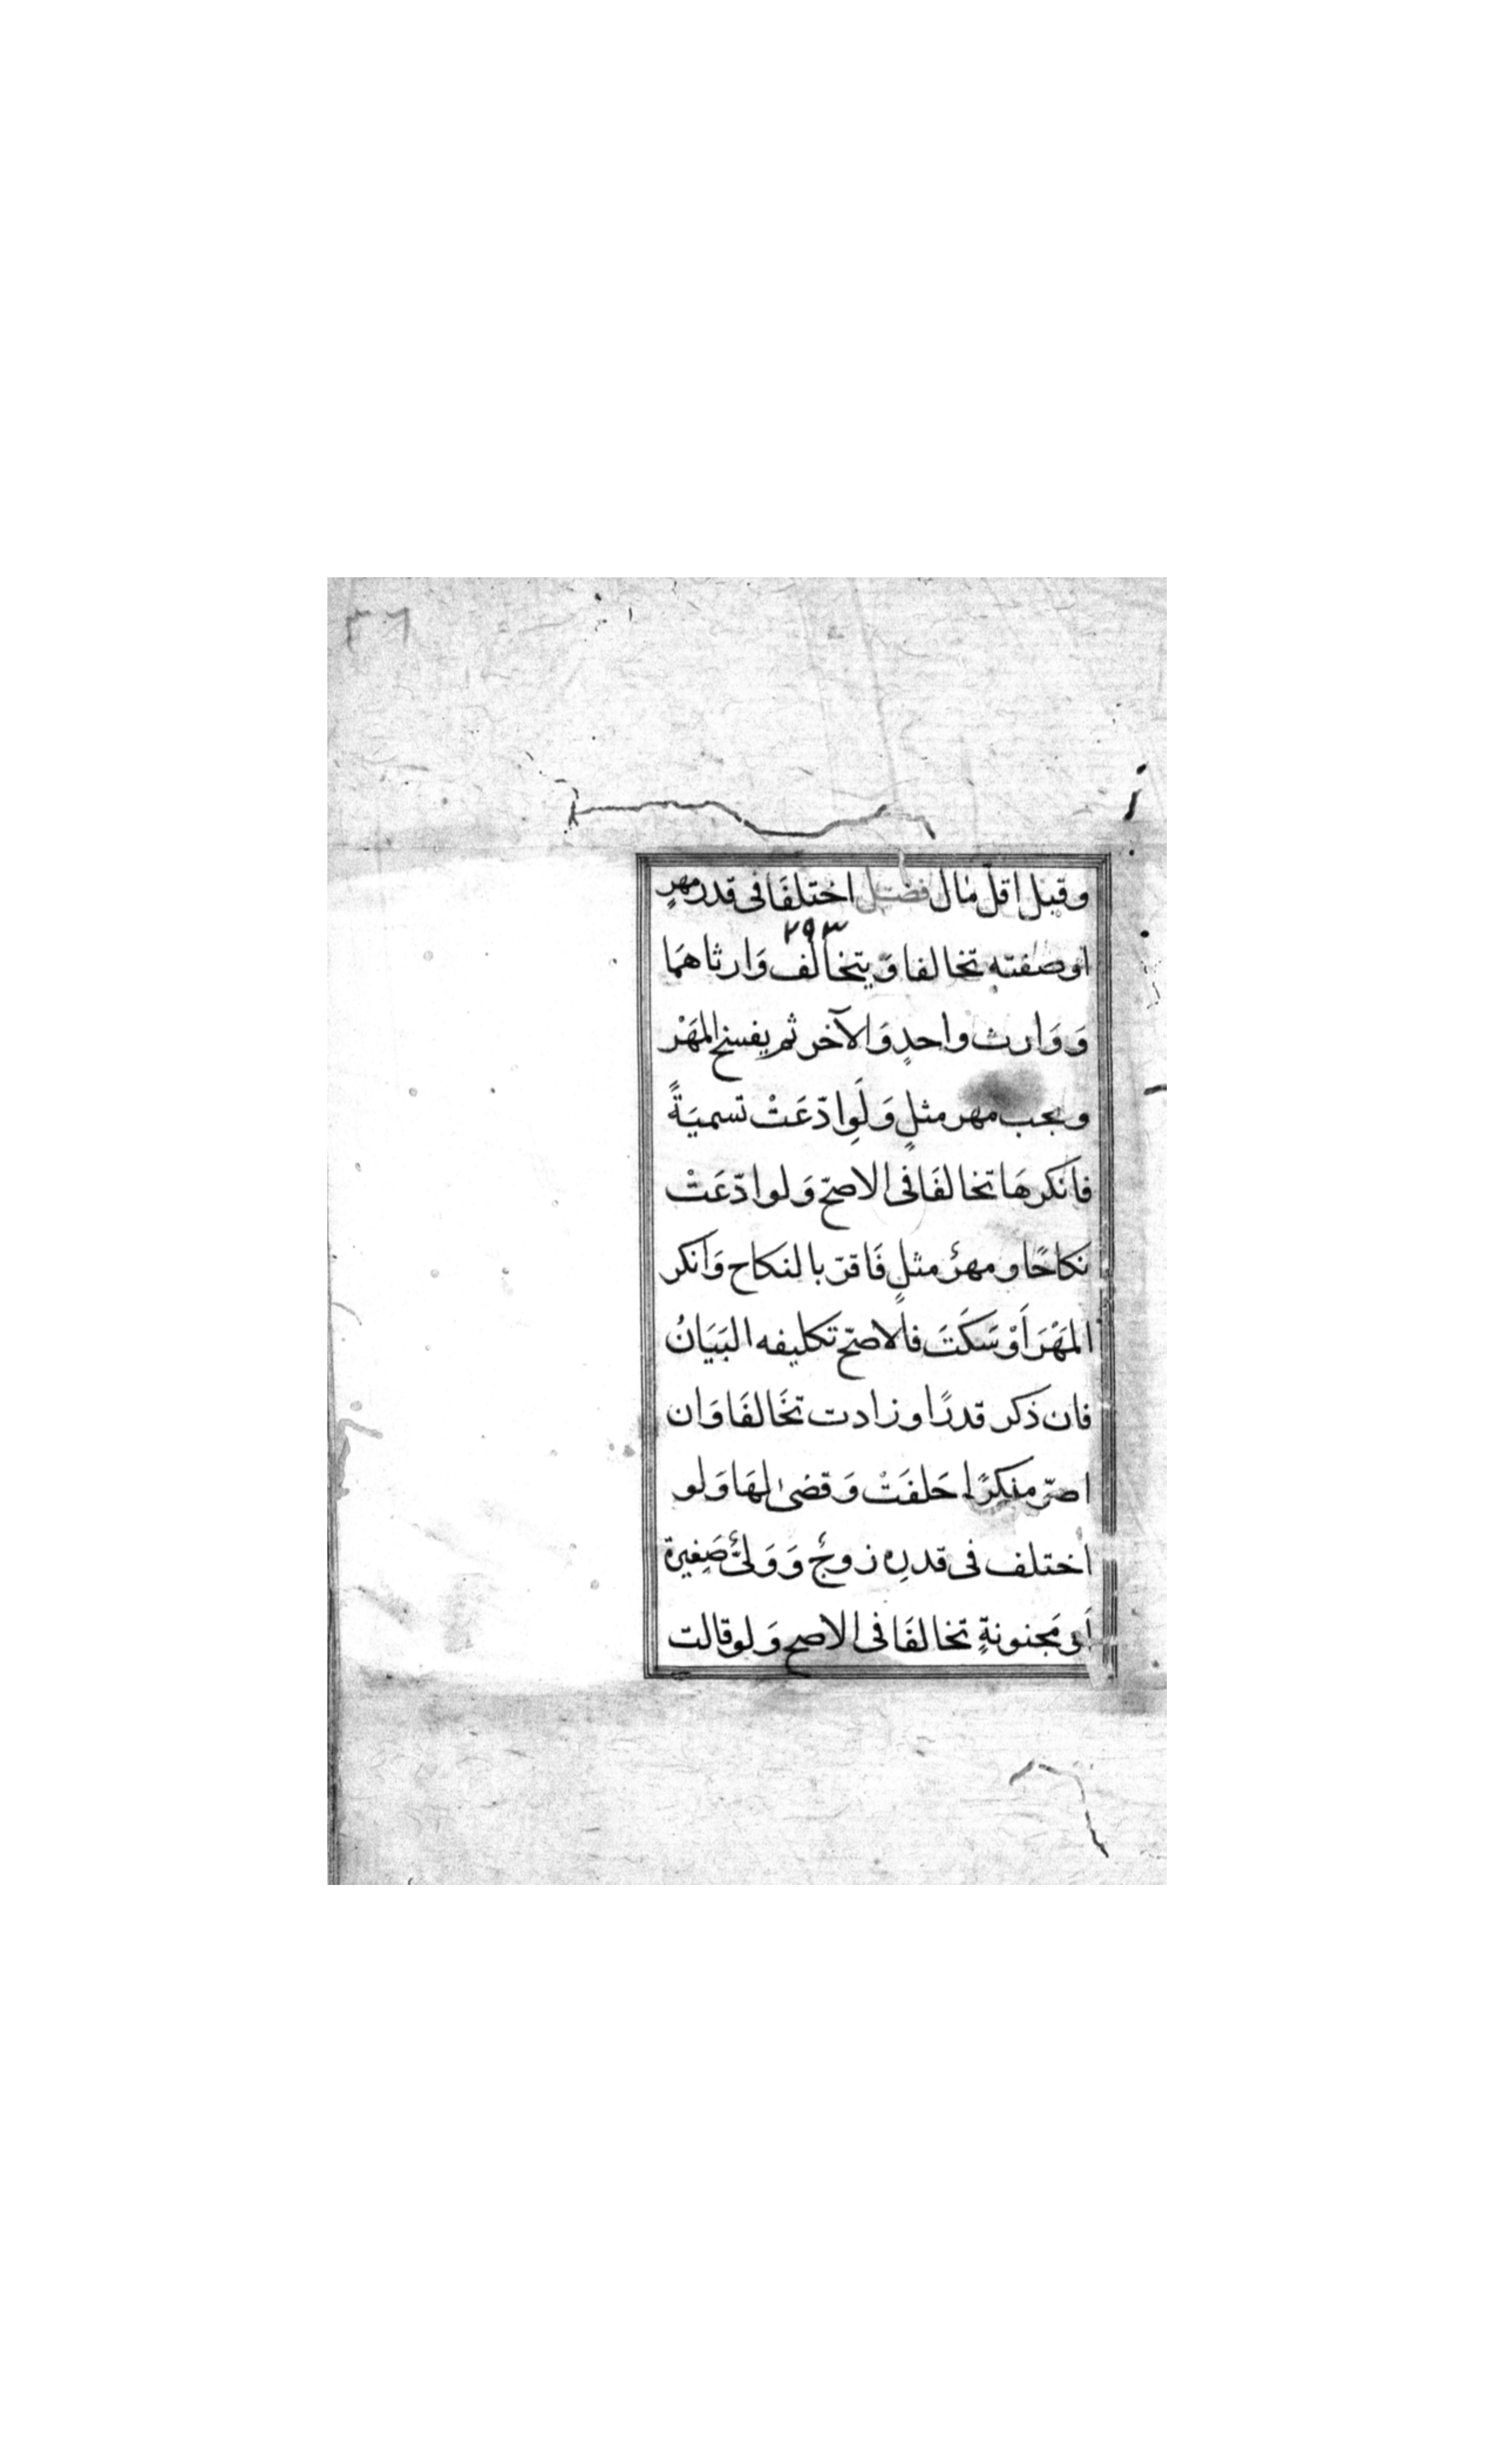 ٣٦
وقيل اقلّ مال فصل اختلفَا فى قدر مهرٍ
٢٩٣
او صفته تحالفا وَيتحالف وَارثاهمَا
وَوَارث واحدٍ وَالآخر ثم يفسخ المَهْر
ويجب مهر مثلٍ وَلَوِ ادّعَتْ تسميَةً
فانكرهَا تحالفَا فى الاصحّ وَلو ادّعَتْ
نكاحًا ومهرَ مثلٍ فَاقرّ بالنكاح وَانكر
المَهْرَ اَوْ سَكَتَ فالاصحّ تكليفه البَيَانُ
فان ذكر قدرًا وزادت تحَالفَا وَان
اصرّ منكرًا حَلفَتْ وَقضىٰ لهَا وَلو
اختلف فى قدرِه زوجٌ وَوَلىُّ صَغِيرة
اَو مَجنونةٍ تحالفَا فى الاصح وَلو قالت